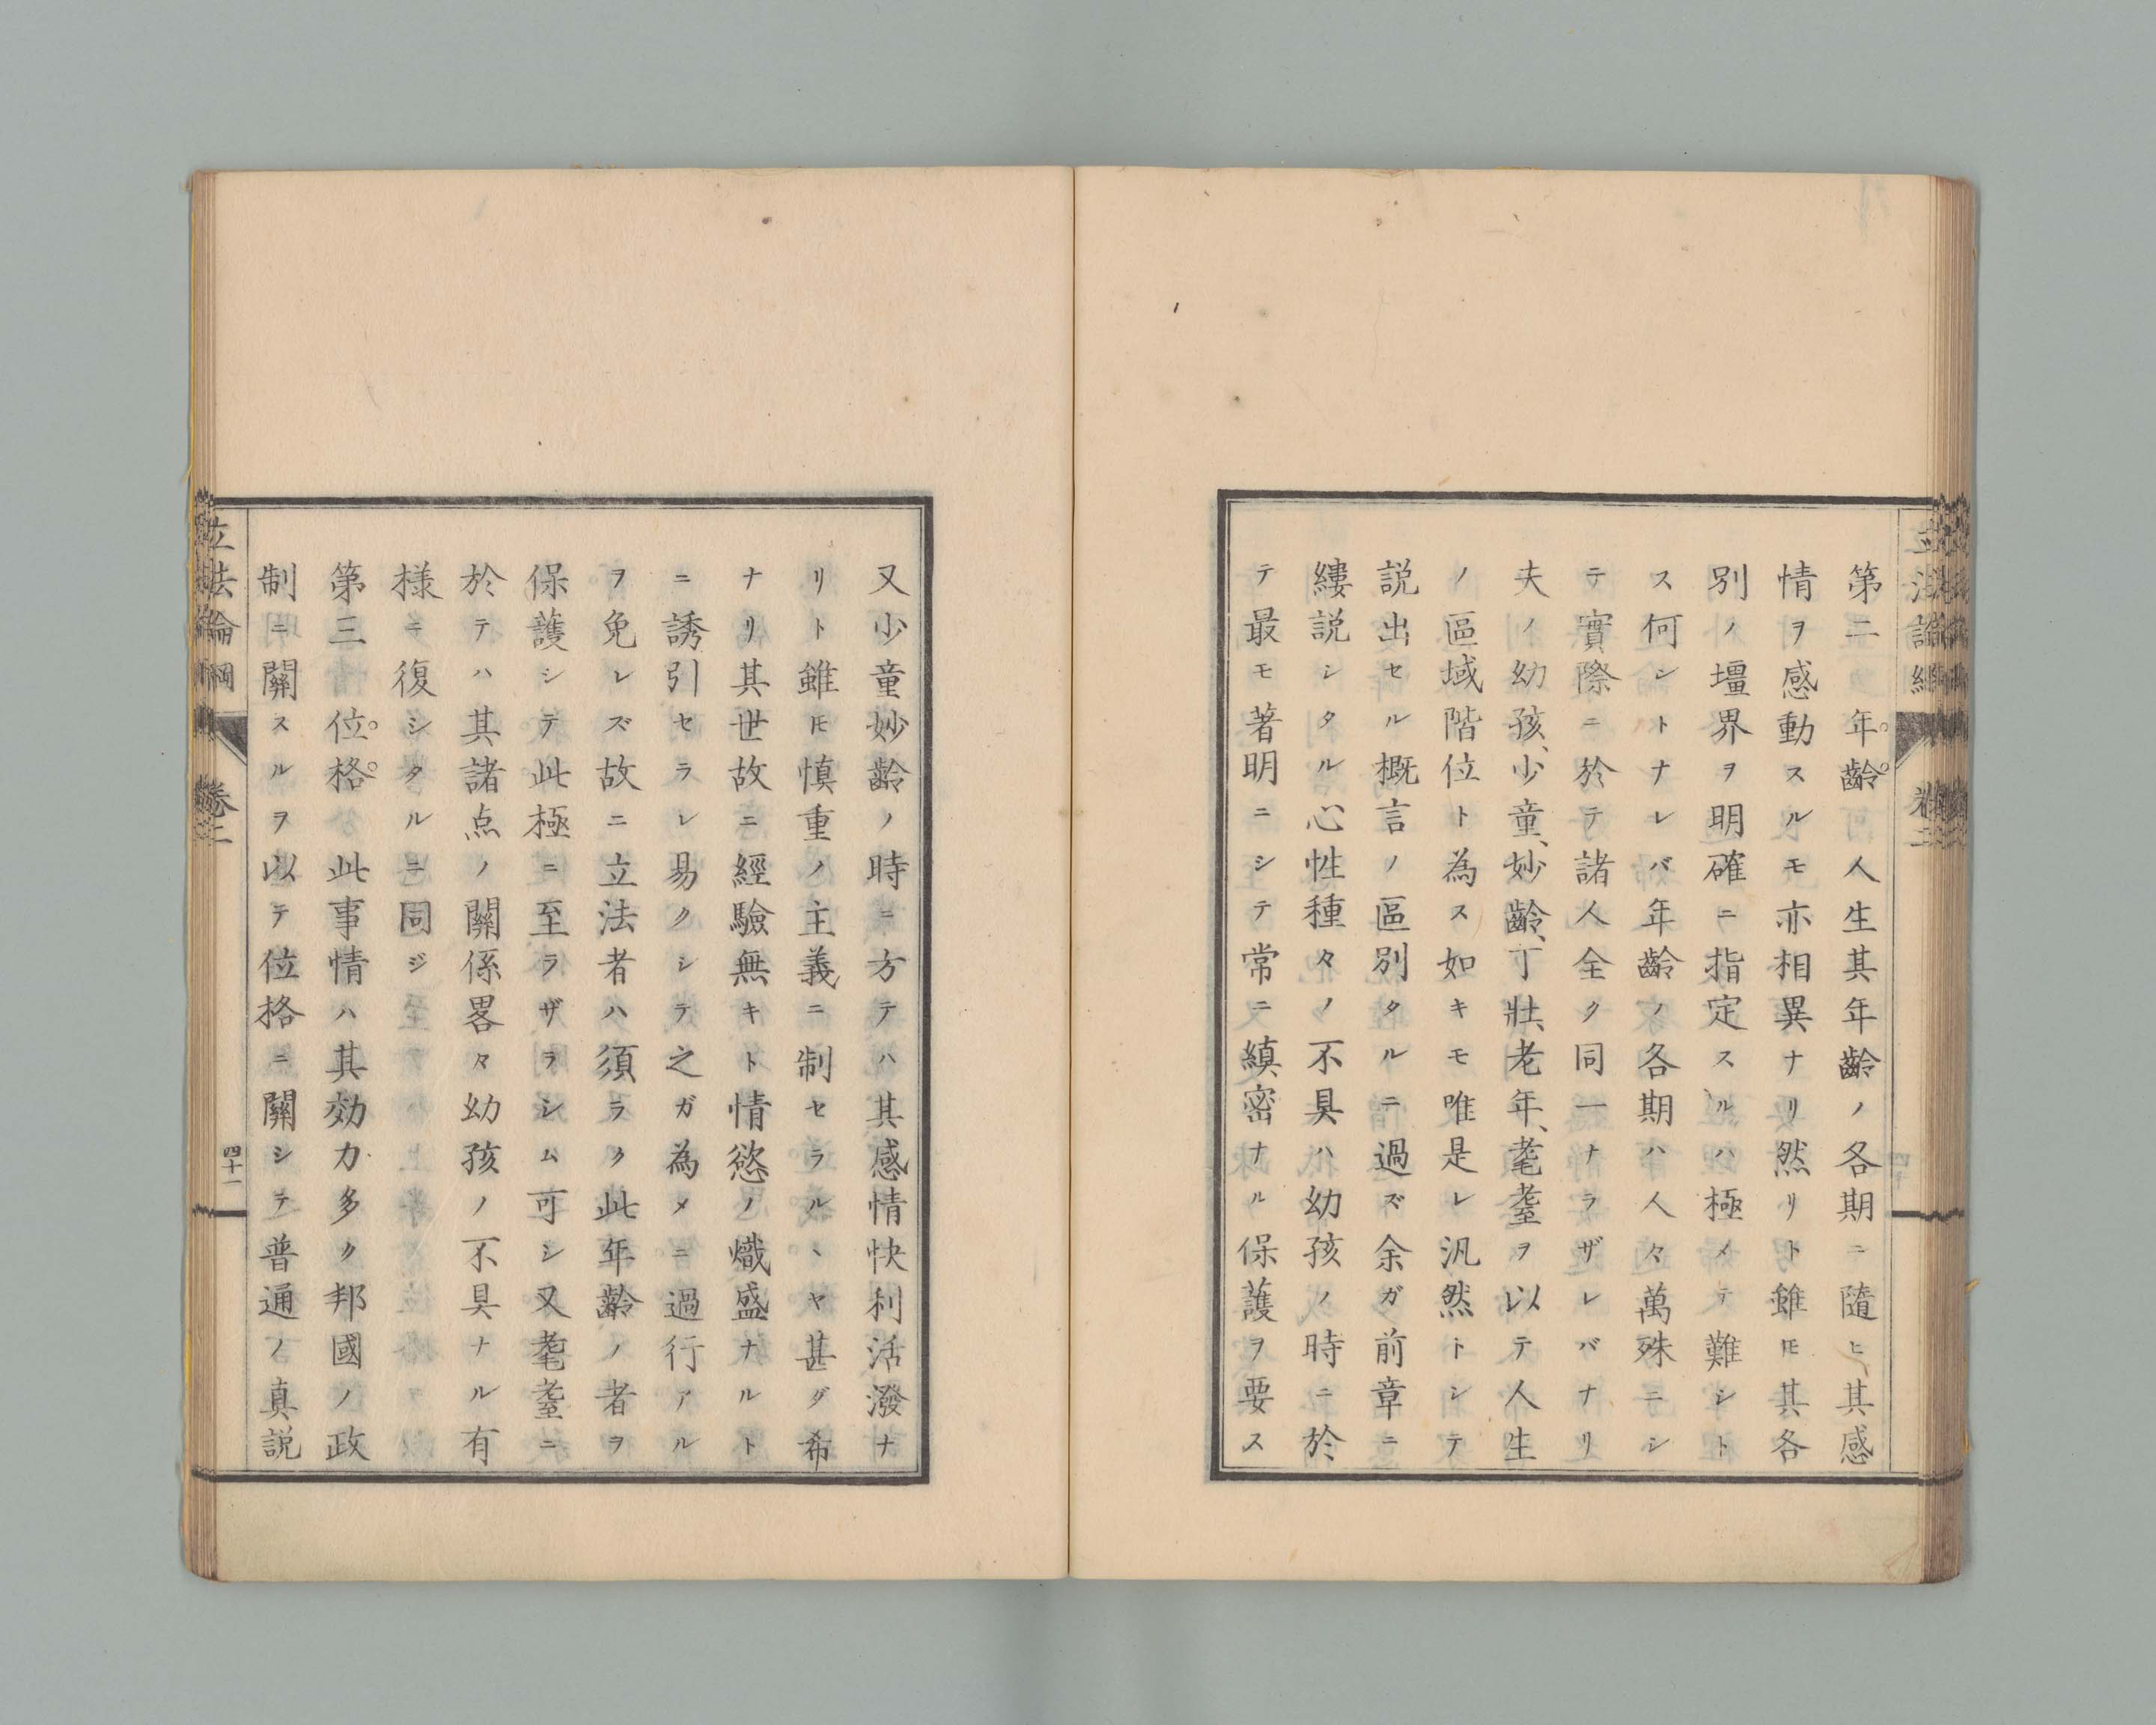 第二年齡人生其年齡ノ各期ニ隨ヒ其感
情ヲ感動スルモ亦相異ナリ然リト雖𪜈其各
別ノ壃界ヲ明確ニ指定スルハ極メテ難シト
ス何シトナレバ年齡ノ各期ハ人々萬殊ニシ
テ實際ニ於テ諸人全ク同一ナラザレバナリ
夫ノ幼孩、少童、妙齡、丁壯、老年、耄耋ヲ以テ人生
ノ區域階位ト為ス如キモ唯是レ汎然トシテ
説出セル概言ノ區別タルニ過ズ余ガ前章ニ
縷説シタル心性種々ノ不具ハ幼孩ノ時ニ於
テ最モ著明ニシテ常ニ縝密ナル保護ヲ要ス
又少童妙齡ノ時ニ方テハ其感情快利活潑ナ
リト雖𪜈慎重ノ主義ニ制セラルヽヤ甚ダ希
ナリ其世故ニ經驗無キト情慾ノ熾盛ナルト
ニ誘引セラレ易クシテ之ガ為メニ過行アル
ヲ免レズ故ニ立法者ハ須ラク此年齡ノ者ヲ
保護シテ此極ニ至ラザラシム可シ又耄耋ニ
於テハ其諸点ノ關係畧々幼孩ノ不具ナル有
様ニ復シタルニ同ジ
第三位格此事情ハ其効力多ク邦國ノ政
制ニ關スルヲ以テ位格ニ關シテ普通ノ真説
立法論綱
卷二
四十一